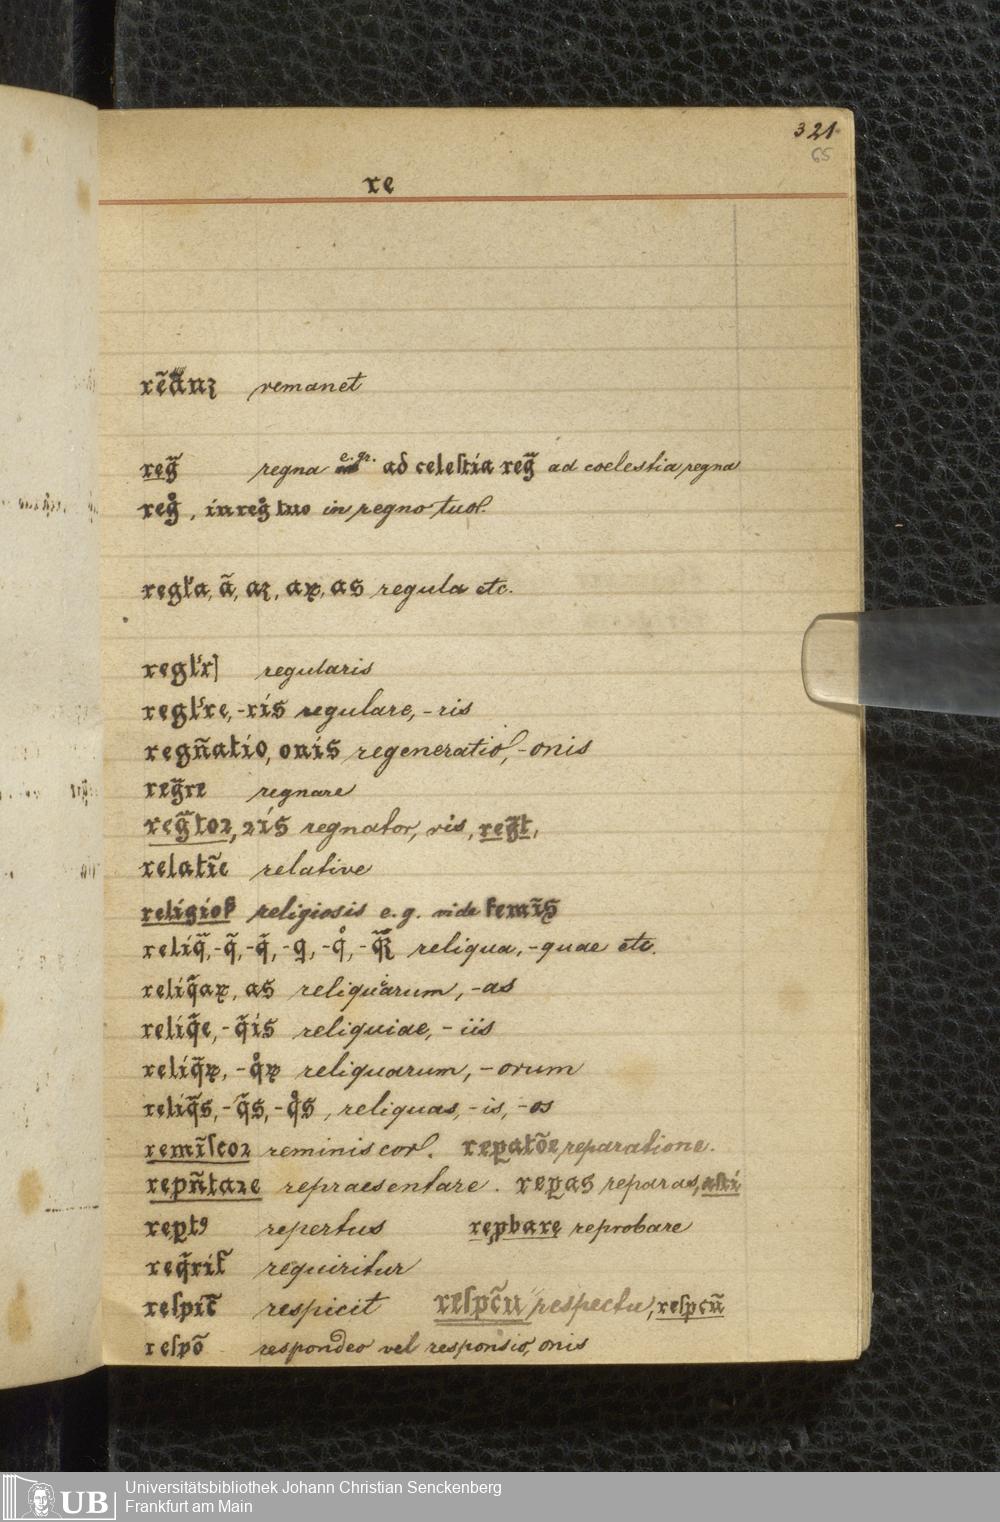 321
65
re
rēāuꝫ remanet
reg̃ regna e. gr. ad celeſtia reg̃ ad coelestia regna
regͦ, in regͦ tuo in regno tuo.
regl̓a, ã, aꝫ, aꝝ, as regula etc.
regl̓r] regularis
regl̓re, -ris regulare, -ris
regñatio, onis regeneratio, -onis
reg̃re regnare
reg̃toꝛ, ꝛis regnator, ris, reg̃t,
relatĩe relative
religioẞ religiosis e. g. vide
reliq̃, -q̃, -q̃, -q, -qͦ, -q̃ꝫ reliqua, -quae etc.
reliq̃aꝝ, as reliquiarum, -as
reliq̃e, -q̃is reliquiae, -iis
reliq̃ꝝ, -qͦꝝ reliquarum, -orum
reliq̃s, -q̃s, -qͦs, reliquas, -is, -os
remĩſcoꝛ reminiscor. reꝑatõe reparatione.
repñtaꝛe repraesentare. reꝑas reparas,
reꝑtꝰ repertus reꝓbare reprobare
req̃rit̃ requiritur
reſpic̃ respicit reſpc̃u respectu, reſpcũ
reſpõ respondeo vel responsio, onis
Universitätsbibliothek Johann Christian Senckenberg
Frankfurt am Main
UB